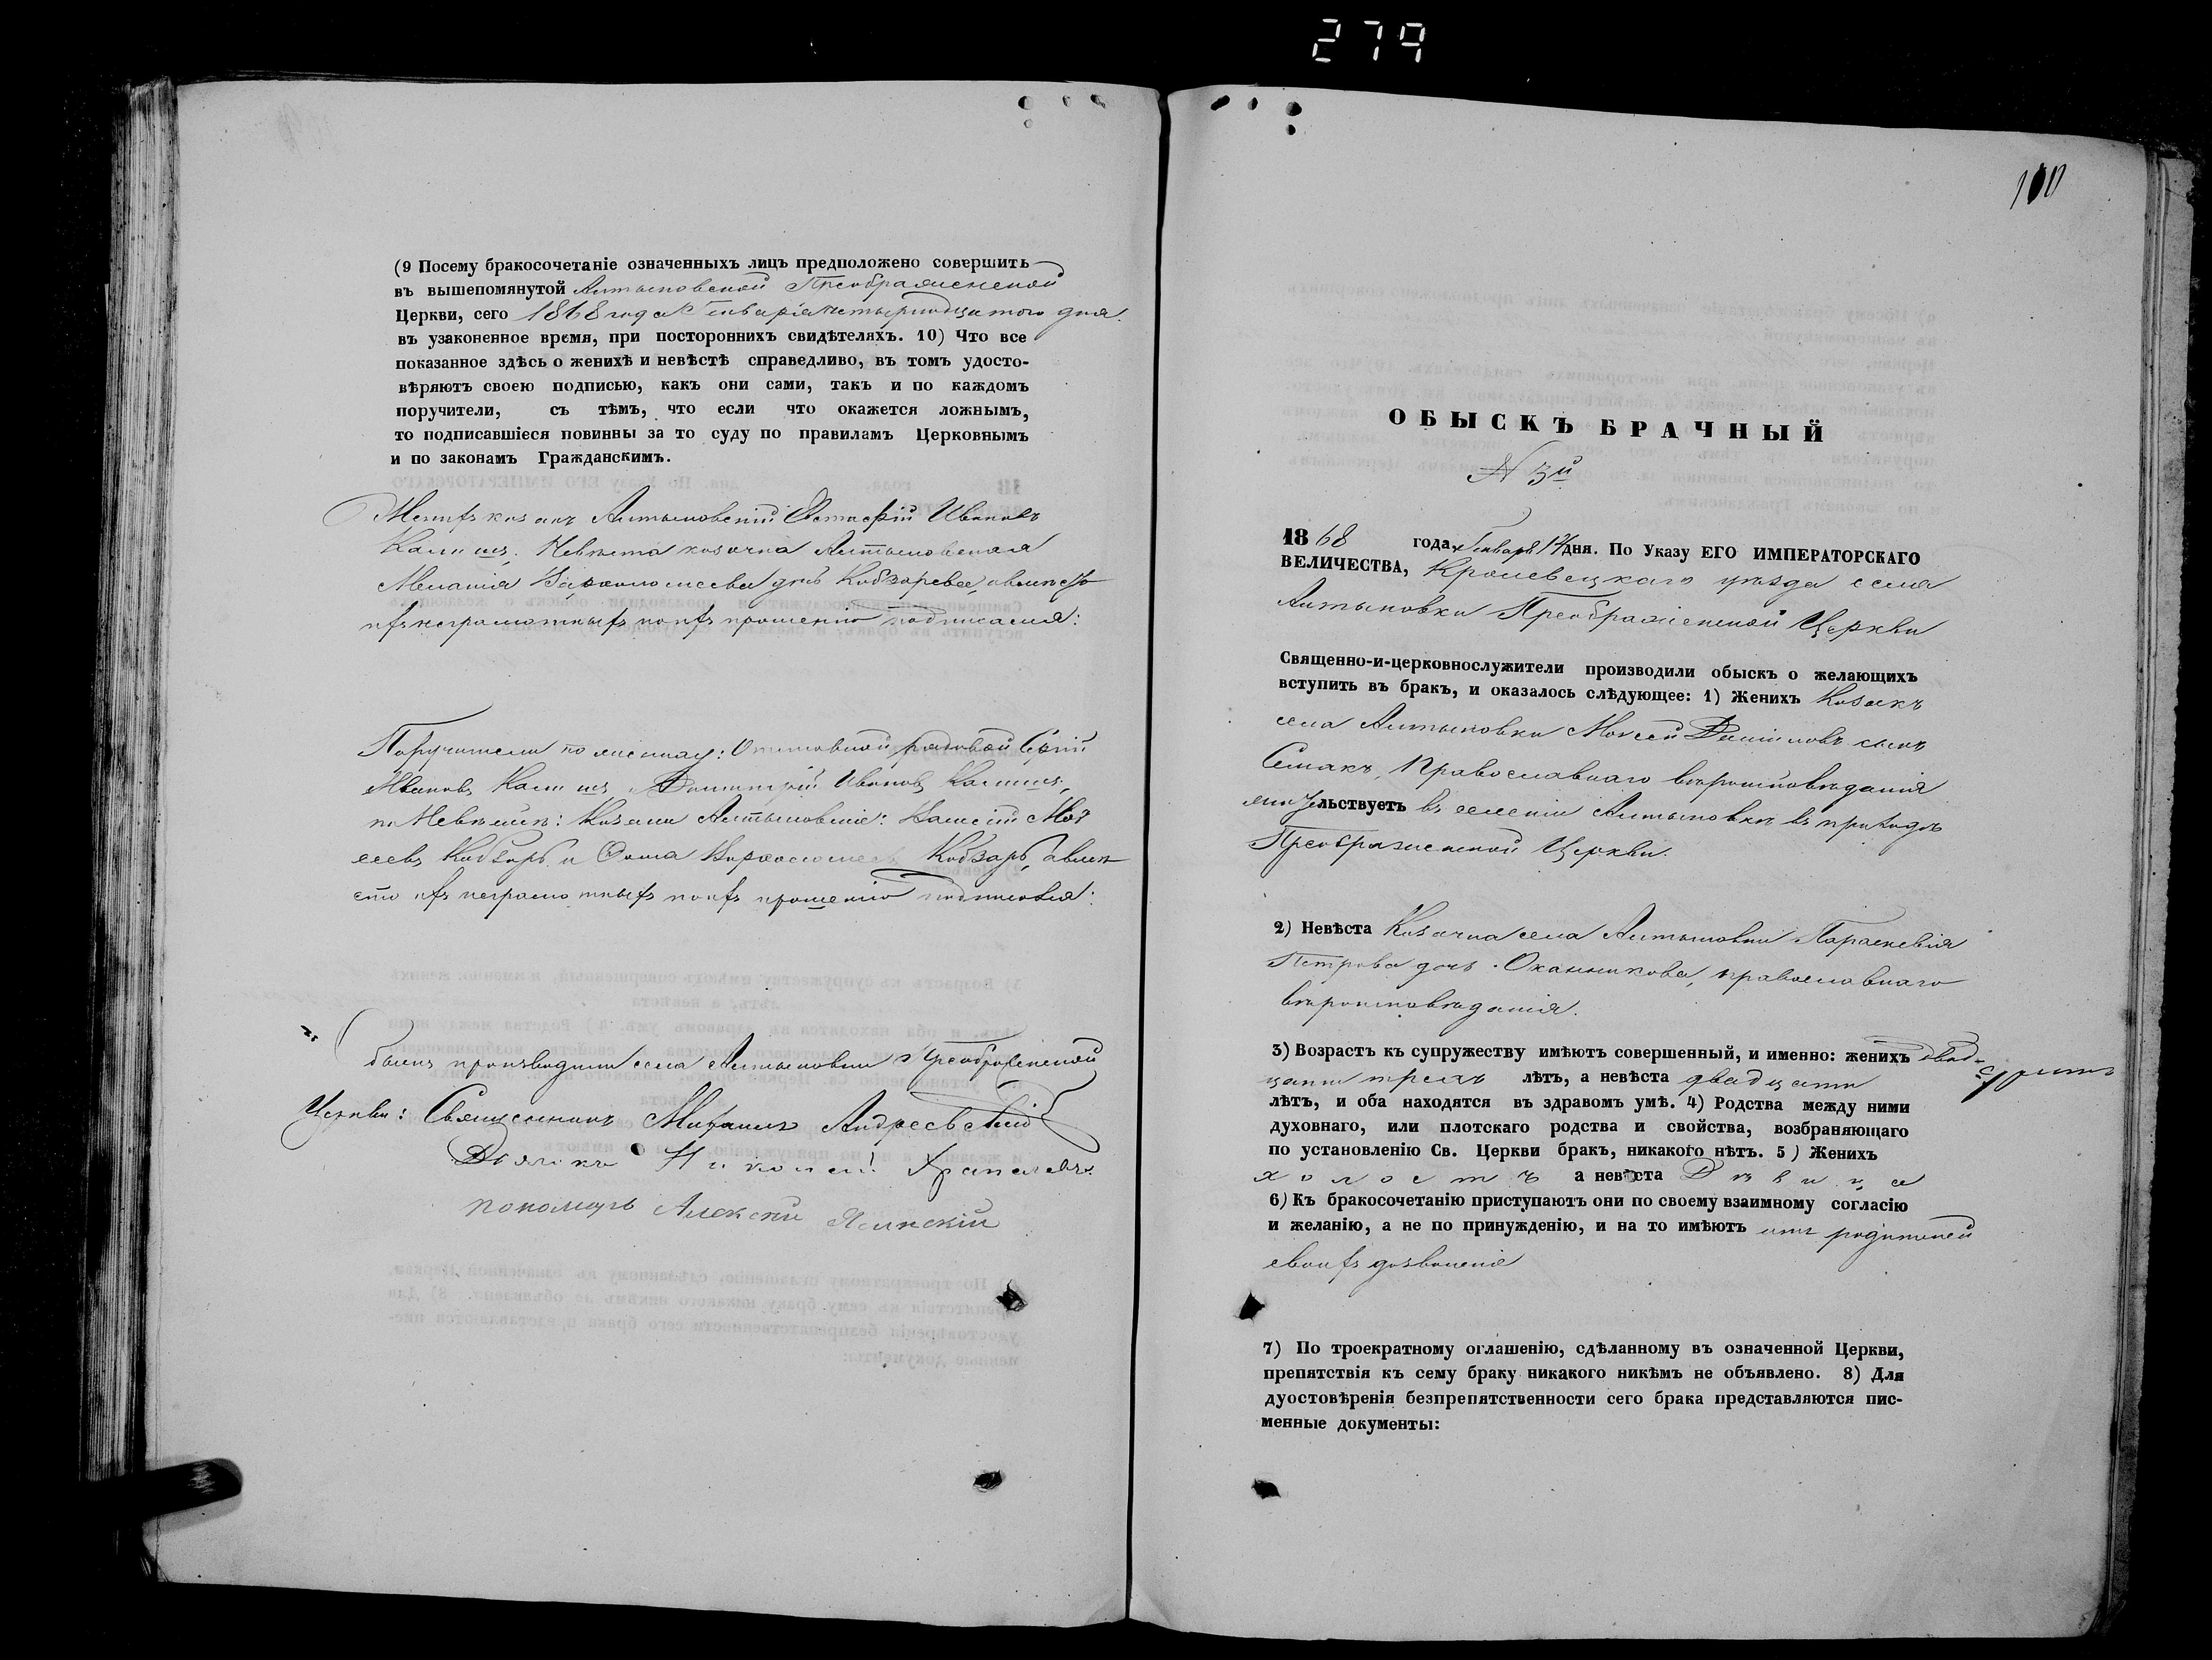 279
(9 Посему бракосочетаніе означенныхъ лицъ предположено совершить
въ вышепомянутой Алтыновской Преображенской
Церкви, сего 1868 года Генваря четырнадцатого дня.
въ узаконенное время, при постороннихъ свидѣтеляхъ. 10) Что все
показанное здѣсь о женихѣ и невѣстѣ справедливо, въ томъ удосто-
вѣряютъ своею подписью, какъ они сами, такъ и по каждомъ
поручители, съ тѣмъ, что если что окажется ложнымъ,
то подписавшіеся повинны за то суду по правиламъ Церковнымъ
и по законамъ Гражданскимъ.
козакъ Алтыновскій Ивановъ
Невѣста козачка Алтыновская
Меланія дочь Кобзарева, а вмѣсто
ихъ неграмотныхъ по ихъ прошенію подписался:
Поручители по женихѣ: рядовой
Ивановъ Димитрій Ивановъ
по Невѣстѣ: Козаки Алтыновскіе: Моѵ
сеевъ Кобзарь и Фома Кобзарь, а вмѣ
сто ихъ неграмотныхъ по ихъ прошенію подписался:
Обыскъ производили села Алтыновки Преображенской
Церкви: Священникъ Михаилъ Андреевскій
Дьячкъ Николай
пономарь Алексѣй
100
ОБЫСКЪ БРАЧНЫЙ
N 3й
1868 года, Генваря 14 дня. По Указу ЕГО ИМПЕРАТОРСКАГО
ВЕЛИЧЕСТВА, Кролевецкаго уѣзда села
Алтыновки Преображенской Церкви
Священно-и-церковнослужители производили обыскъ о желающихъ
вступить въ бракъ, и оказалось слѣдующее: 1) Женихъ Козакъ
села Алтыновки Моѵсей Даніиловъ сынъ
Семакъ, Православнаго вѣроисповѣданія
жительствуетъ въ селеніи Алтыновкѣ въ приходѣ
Преображенской Церкви.
2) Невѣста Козачка села Алтыновки Параскевія
Петрова дочь православнаго
вѣроисповѣданія.
3) Возрастъ къ супружеству имѣютъ совершенный, и именно: женихъ двад-
цати трехъ лѣтъ, а невѣста двадцати
лѣтъ, и оба находятся въ здравомъ умѣ. 4) Родства между ними
духовнаго, или плотскаго родства и свойства, возбраняющаго
по установленію Св. Церкви бракъ, никакого нѣтъ. 5) Женихъ
холостъ а невѣста Дѣвица
6) Къ бракосочетанію приступаютъ они по своему взаимному согласію
и желанію, а не по принужденію, и на то имѣютъ отъ родителей
своихъ дозволеніе
7) По троекратному оглашенію, сдѣланному въ означенной Церкви,
препятствія къ сему браку никакого никѣмъ не объявлено. 8) Для
дуостовѣренія безпрепятственности сего брака представляются пис-
менные документы: